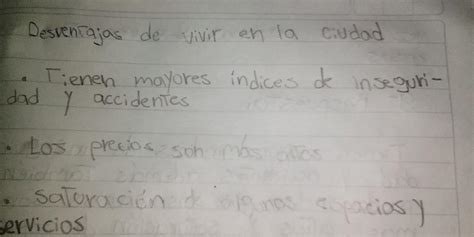 Desventajas de vivir en la ciudad
• Tienen mayores índices de inseguri-
dad y accidentes
• Los precios son más altos
• saturación de algunos espacios y
servicios